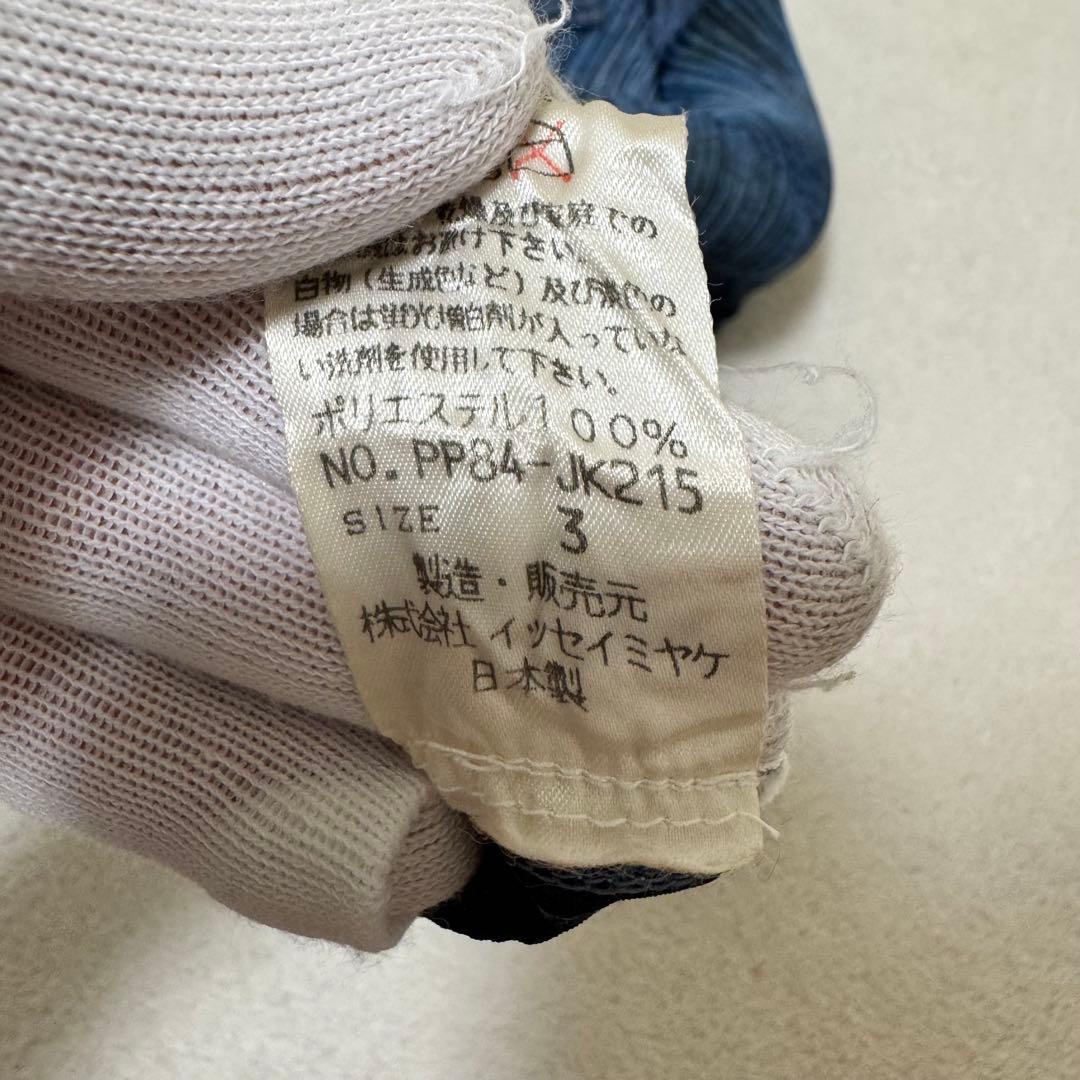 及び家庭での
はお避け下さい。
白物(生成色など)及び淡色の
場合は蛍光増白剤が入っていな
い洗剤を使用して下さい。
ポリエステル100%
NO. PP84-JK215
SIZE 3
製造・販売元
株式会社 イッセイミヤケ
日本製